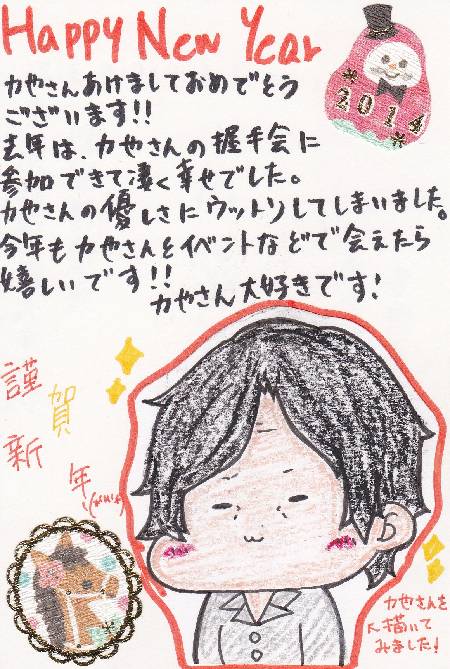 HAPPY NEW YEAR
2014
カやさんあけましておめでとう
ございます!!
去年は、カやさんの握手会に
参加できて凄く幸せでした。
カやさんの優しさにウットリしてしまいました。
今年もカやさんとイベントなどで会えたら
嬉しいです!!
カやさん大好きです!
謹
賀
新
年
カやさんを
描いて
みました!